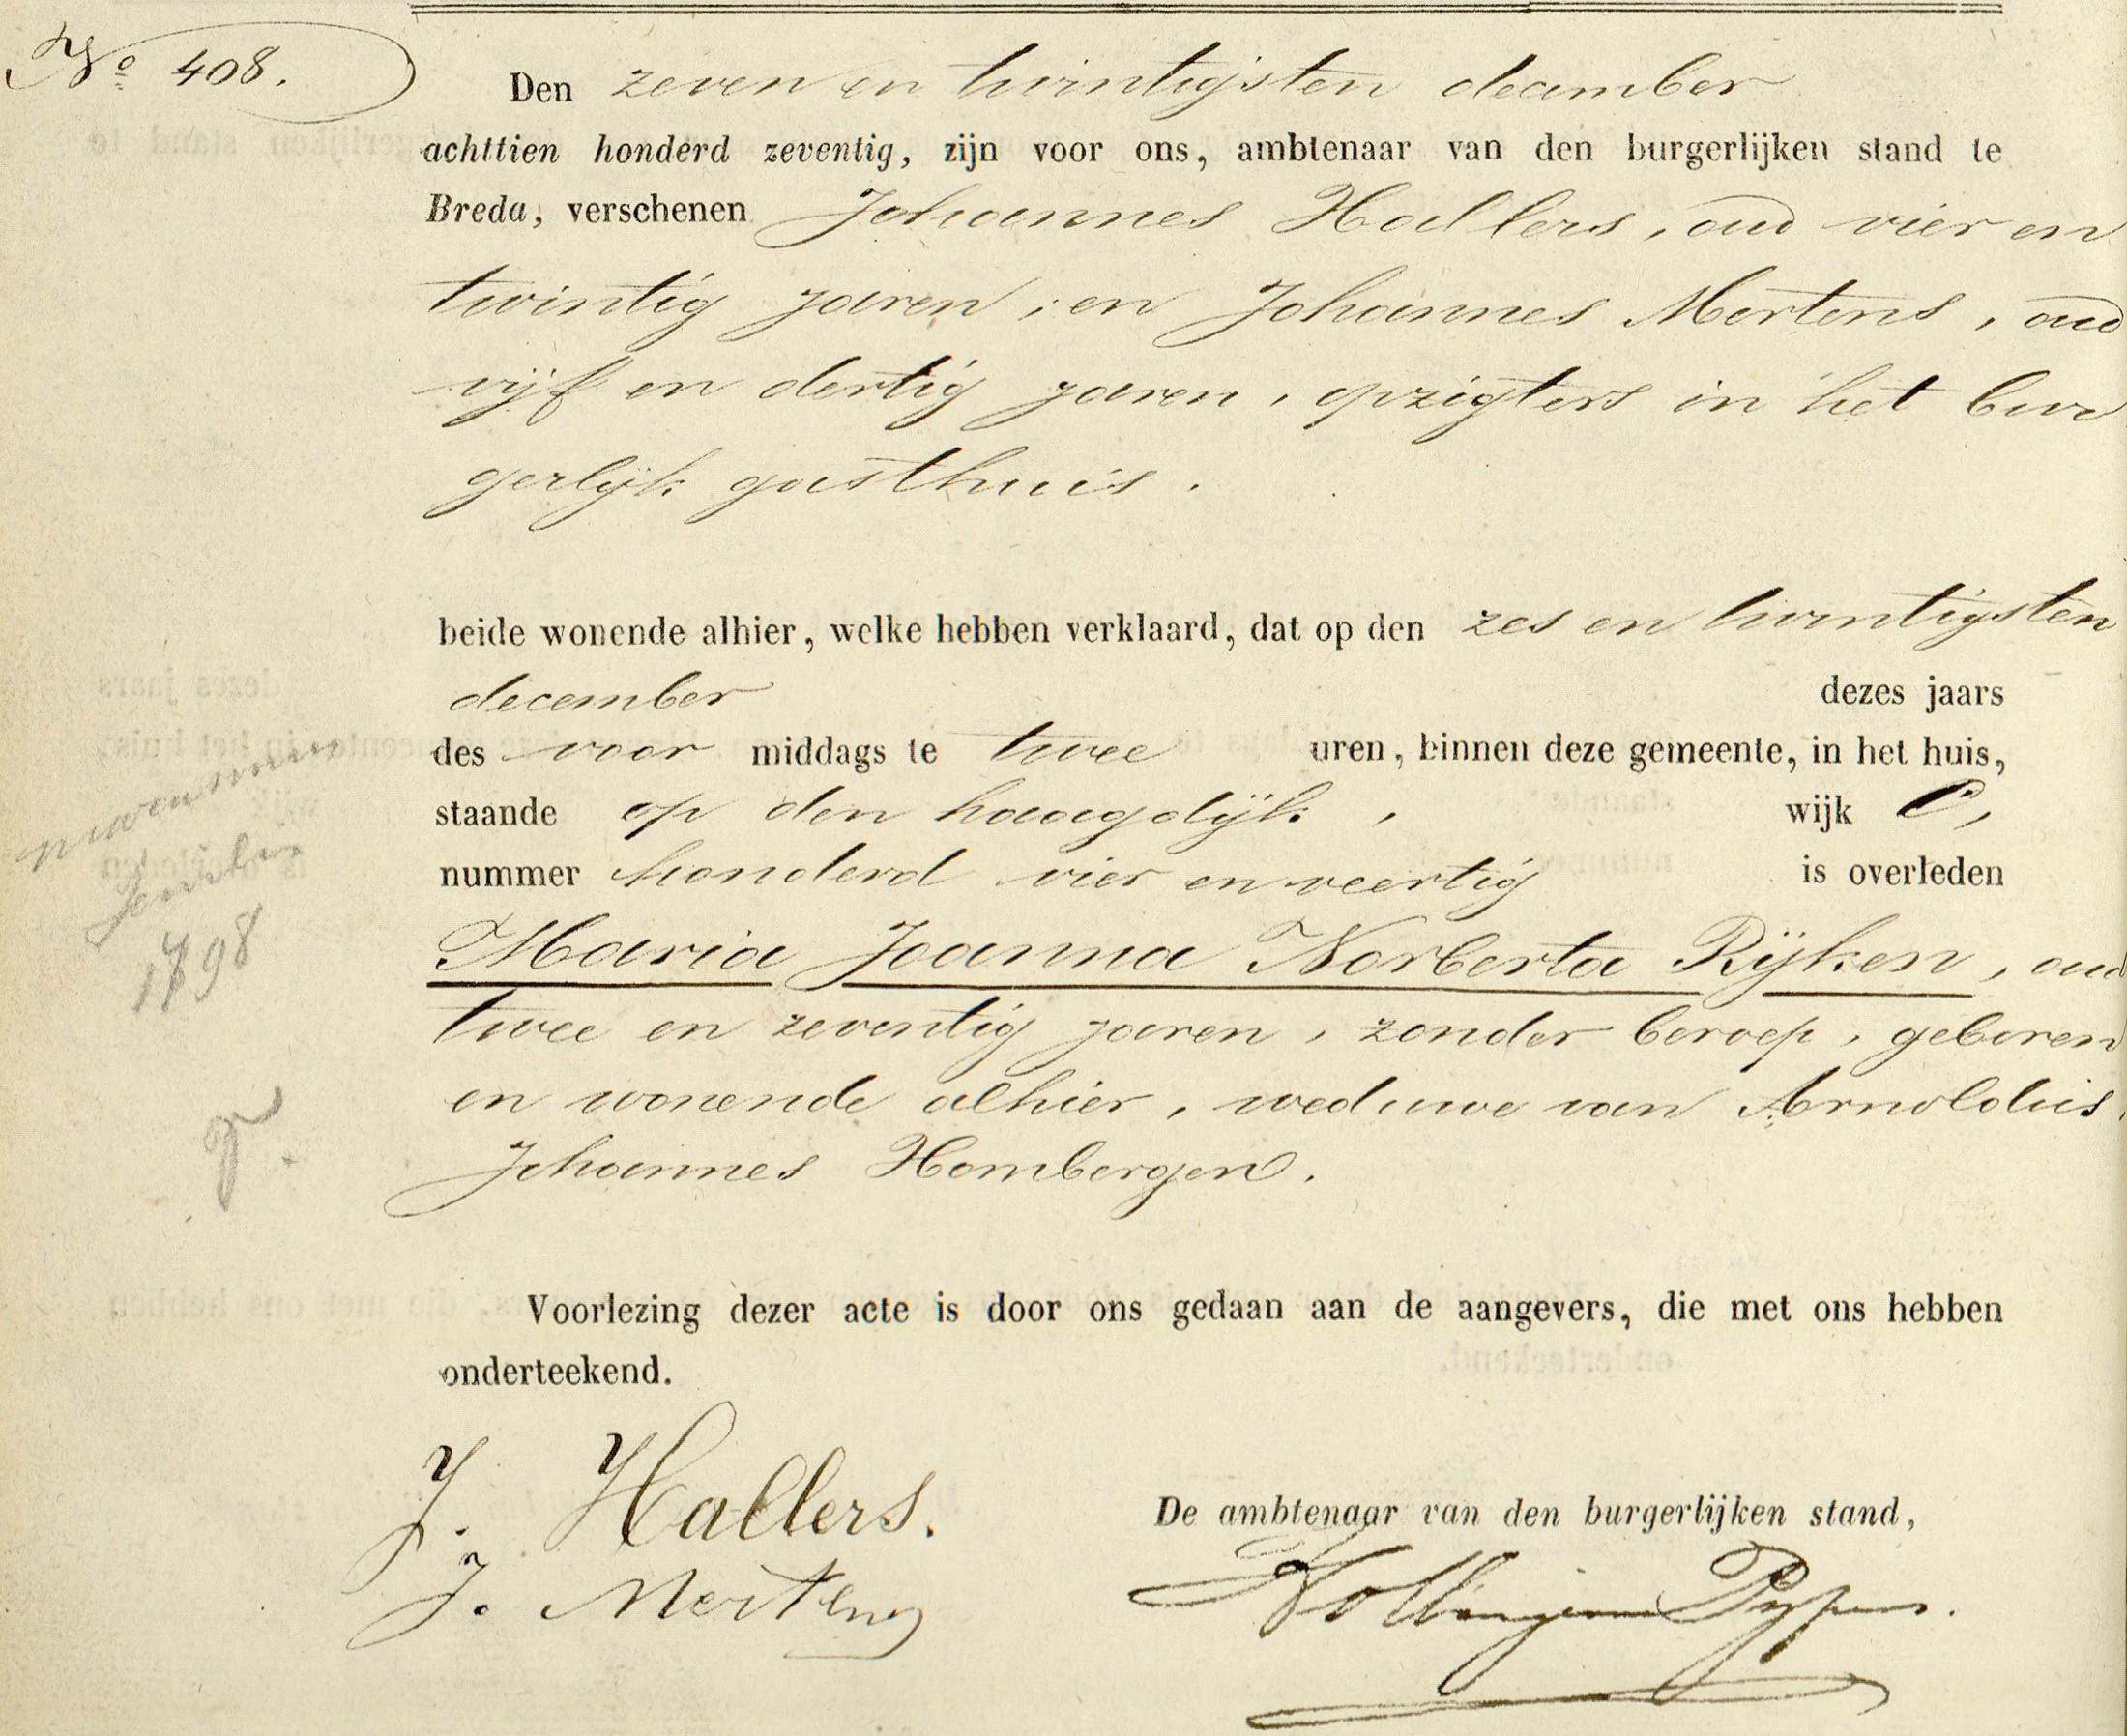 No 408.
Den zeven en twintigsten december
achttien honderd zeventig, zijn voor ons, ambtenaar van den burgerlijken stand te
Breda, verschenen Johannes Hallers, oud vier en
twintig jaren, en Johannes Mertens, oud
vijf en dertig jaren, opzigters in het bur
gerlijk gasthuis.
beide wonende alhier, welke hebben verklaard, dat op den zes en twintigsten
december dezes jaars
des voor middags te twee uren, binnen deze gemeente, in het huis,
staande op den haagdijk, wijk C,
nummer honderd vier en veertig is overleden
Maria Joanna Norberta Rijken, oud
twee en zeventig jaren, zonder beroep, geboren
en wonende alhier, weduwe van Arnoldus
Johannes Hombergen.
1798
Voorlezing dezer acte is door ons gedaan aan de aangevers, die met ons hebben
onderteekend.
J. Hallers.
De ambtenaar van den burgerlijken stand,
J. Mertens